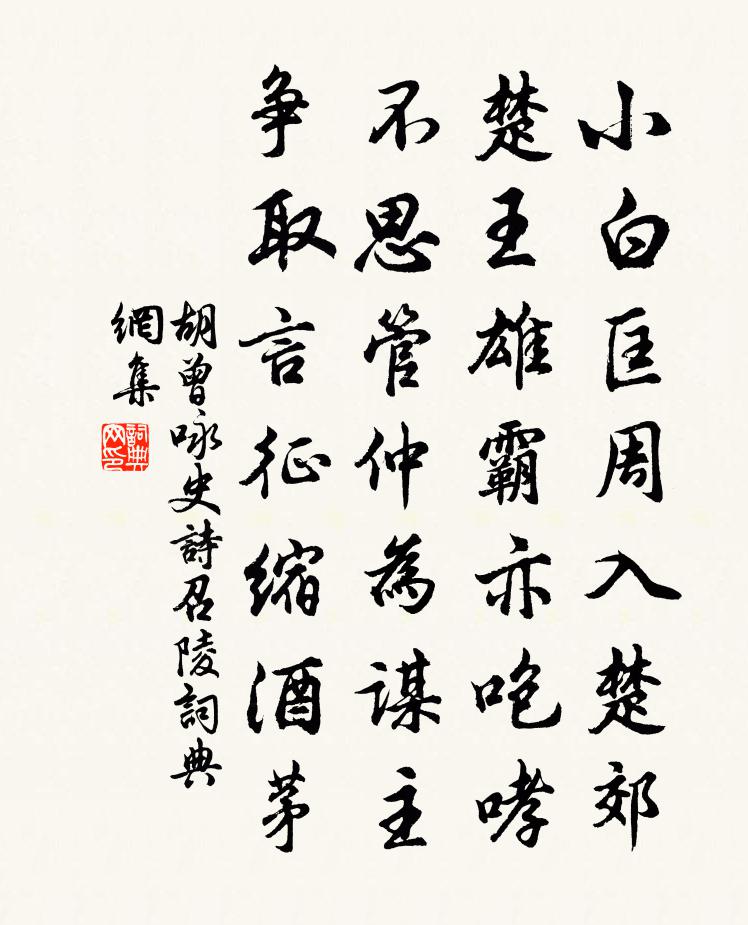 小白匡周入楚郊
楚王雄霸亦咆哮
不思管仲為謀主
争取言征缩酒茅
胡曾咏史詩召陵詞典
網集
詞典
网印